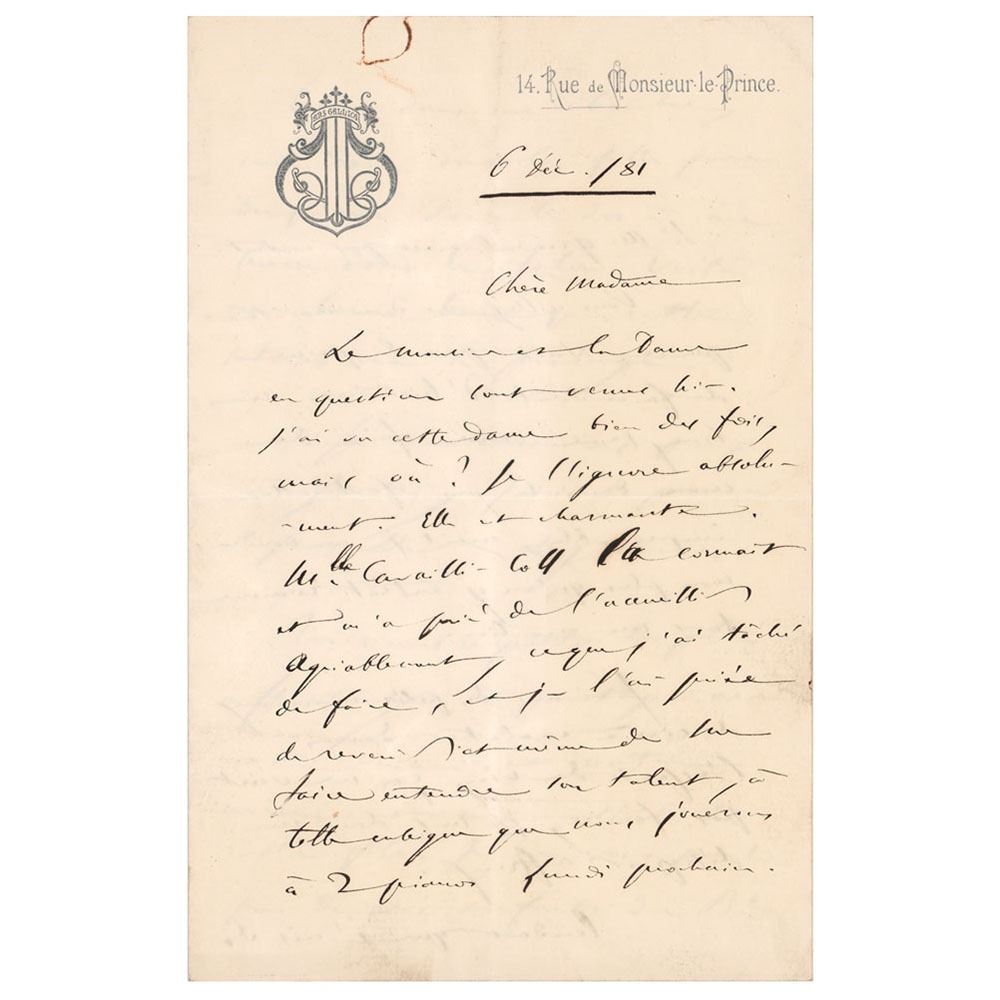 ARS GALLICA
14. Rue de Monsieur-le-Prince.
6 Déc. /81
Chère Madame
Le monsieur et la Dame
en question sont venus hier.
J'ai vu cette dame bien des fois,
mais où ? Je l'ignore absolu-
-ment. Elle est charmante.
Mlle Cavaillé-Coll la connait
et m'a prié de l'accueillir
agréablement, ce que j'ai tâché
de faire, et je l'ai priée
de revenir et même de me
faire entendre son talent, à
telle enseigne que nous jouerons
à 2 pianos lundi prochain.